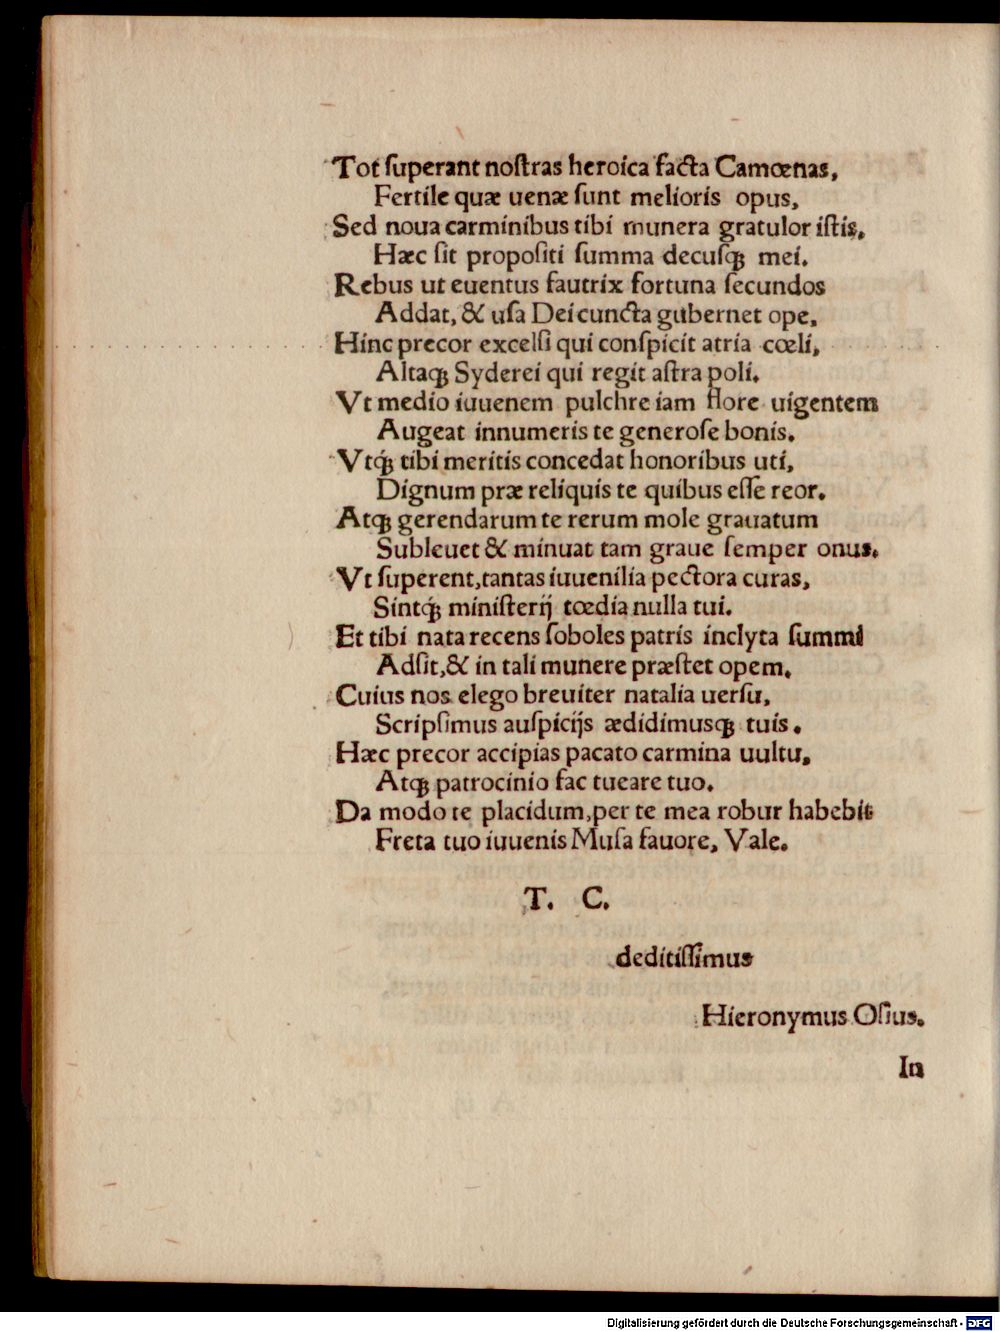 Tot ſuperant noſtras heroica facta Camœnas,
Fertile quæ uenæ ſunt melioris opus,
Sed noua carminibus tibi munera gratulor iſtis,
Hæc ſit propoſiti ſumma decusq́ꝫ mei.
Rebus ut euentus fautrix fortuna ſecundos
Addat, & uſa Dei cuncta gubernet ope,
Hinc precor excelſi qui conſpicit atria cœli,
Altaqꝫ Syderei qui regit aſtra poli.
Vt medio iuuenem pulchre iam flore uigentem
Augeat innumeris te generoſe bonis.
Vtq́ꝫ tibi meritis concedat honoribus uti,
Dignum præ reliquis te quibus eſſe reor.
Atqꝫ gerendarum te rerum mole grauatum
Subleuet & minuat tam graue ſemper onus.
Vt ſuperent, tantas iuuenilia pectora curas,
Sintq́ꝫ miniſterij tœdia nulla tui.
Et tibi nata recens ſoboles patris inclyta ſummi
Adſit, & in tali munere præſtet opem.
Cuius nos elego breuiter natalia uerſu,
Scripſimus auſpicijs ædidimusqꝫ tuis.
Hæc precor accipias pacato carmina uultu,
Atqꝫ patrocinio fac tueare tuo.
Da modo te placidum, per te mea robur habebit
Freta tuo iuuenis Muſa fauore, Vale.
T. C.
deditiſſimus
Hieronymus Oſius.
In
Digitalisierung gefördert durch die Deutsche Forschungsgemeinschaft - DFG